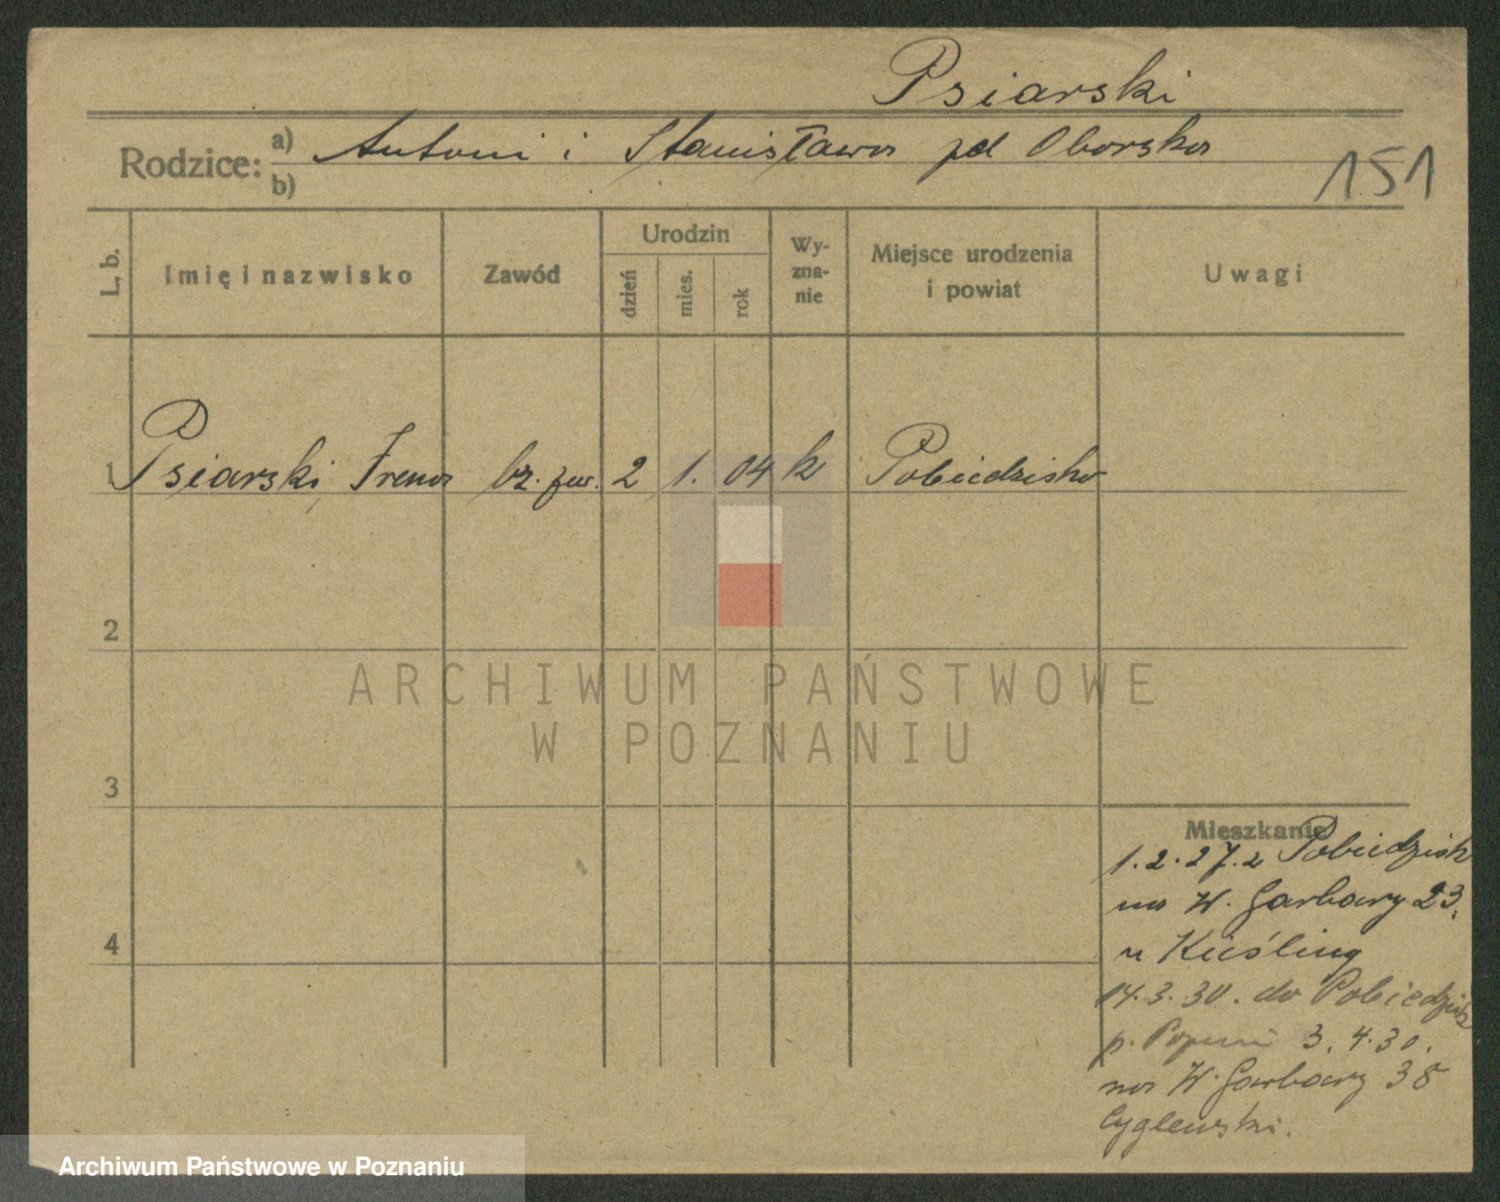 Psiarski
Rodzice: a) Antoni i Stanisława zd Oborska
b)
151
L. b. Imię i nazwisko Zawód Urodzin dzień mies. rok Wyzna-nie Miejsce urodzenia i powiat Uwagi
1 Psiarski, Irena bz. zaw. 2 1. 04 k Pobiedziska
2
3
4
Mieszkanie
1.2.27. z Pobiedzisk
na W. Garbary 23,
u Kieśling
14.3.30. do Pobiedzisk
p. 3.4.30.
na W. Garbary 38
Cyglewski.
ARCHIWUM PAŃSTWOWE
W POZNANIU
Archiwum Państwowe w Poznaniu